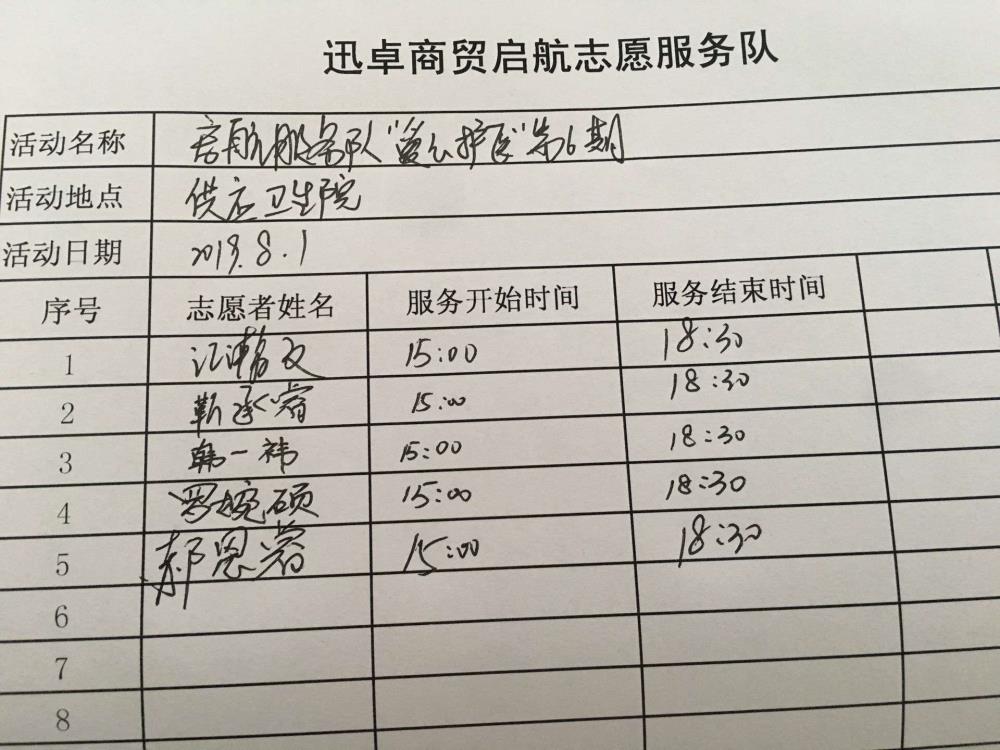 迅卓商贸启航志愿服务队
活动名称 启航服务队"爱心护医"第6期
活动地点 供应卫生院
活动日期 2019.8.1
序号 志愿者姓名 服务开始时间 服务结束时间
1 江瀚文 15:00 18:30
2 靳承睿 15:00 18:30
3 韩一祎 15:00 18:30
4 罗婉硕 15:00 18:30
5 郝恩蓉 15:00 18:30
6
7
8